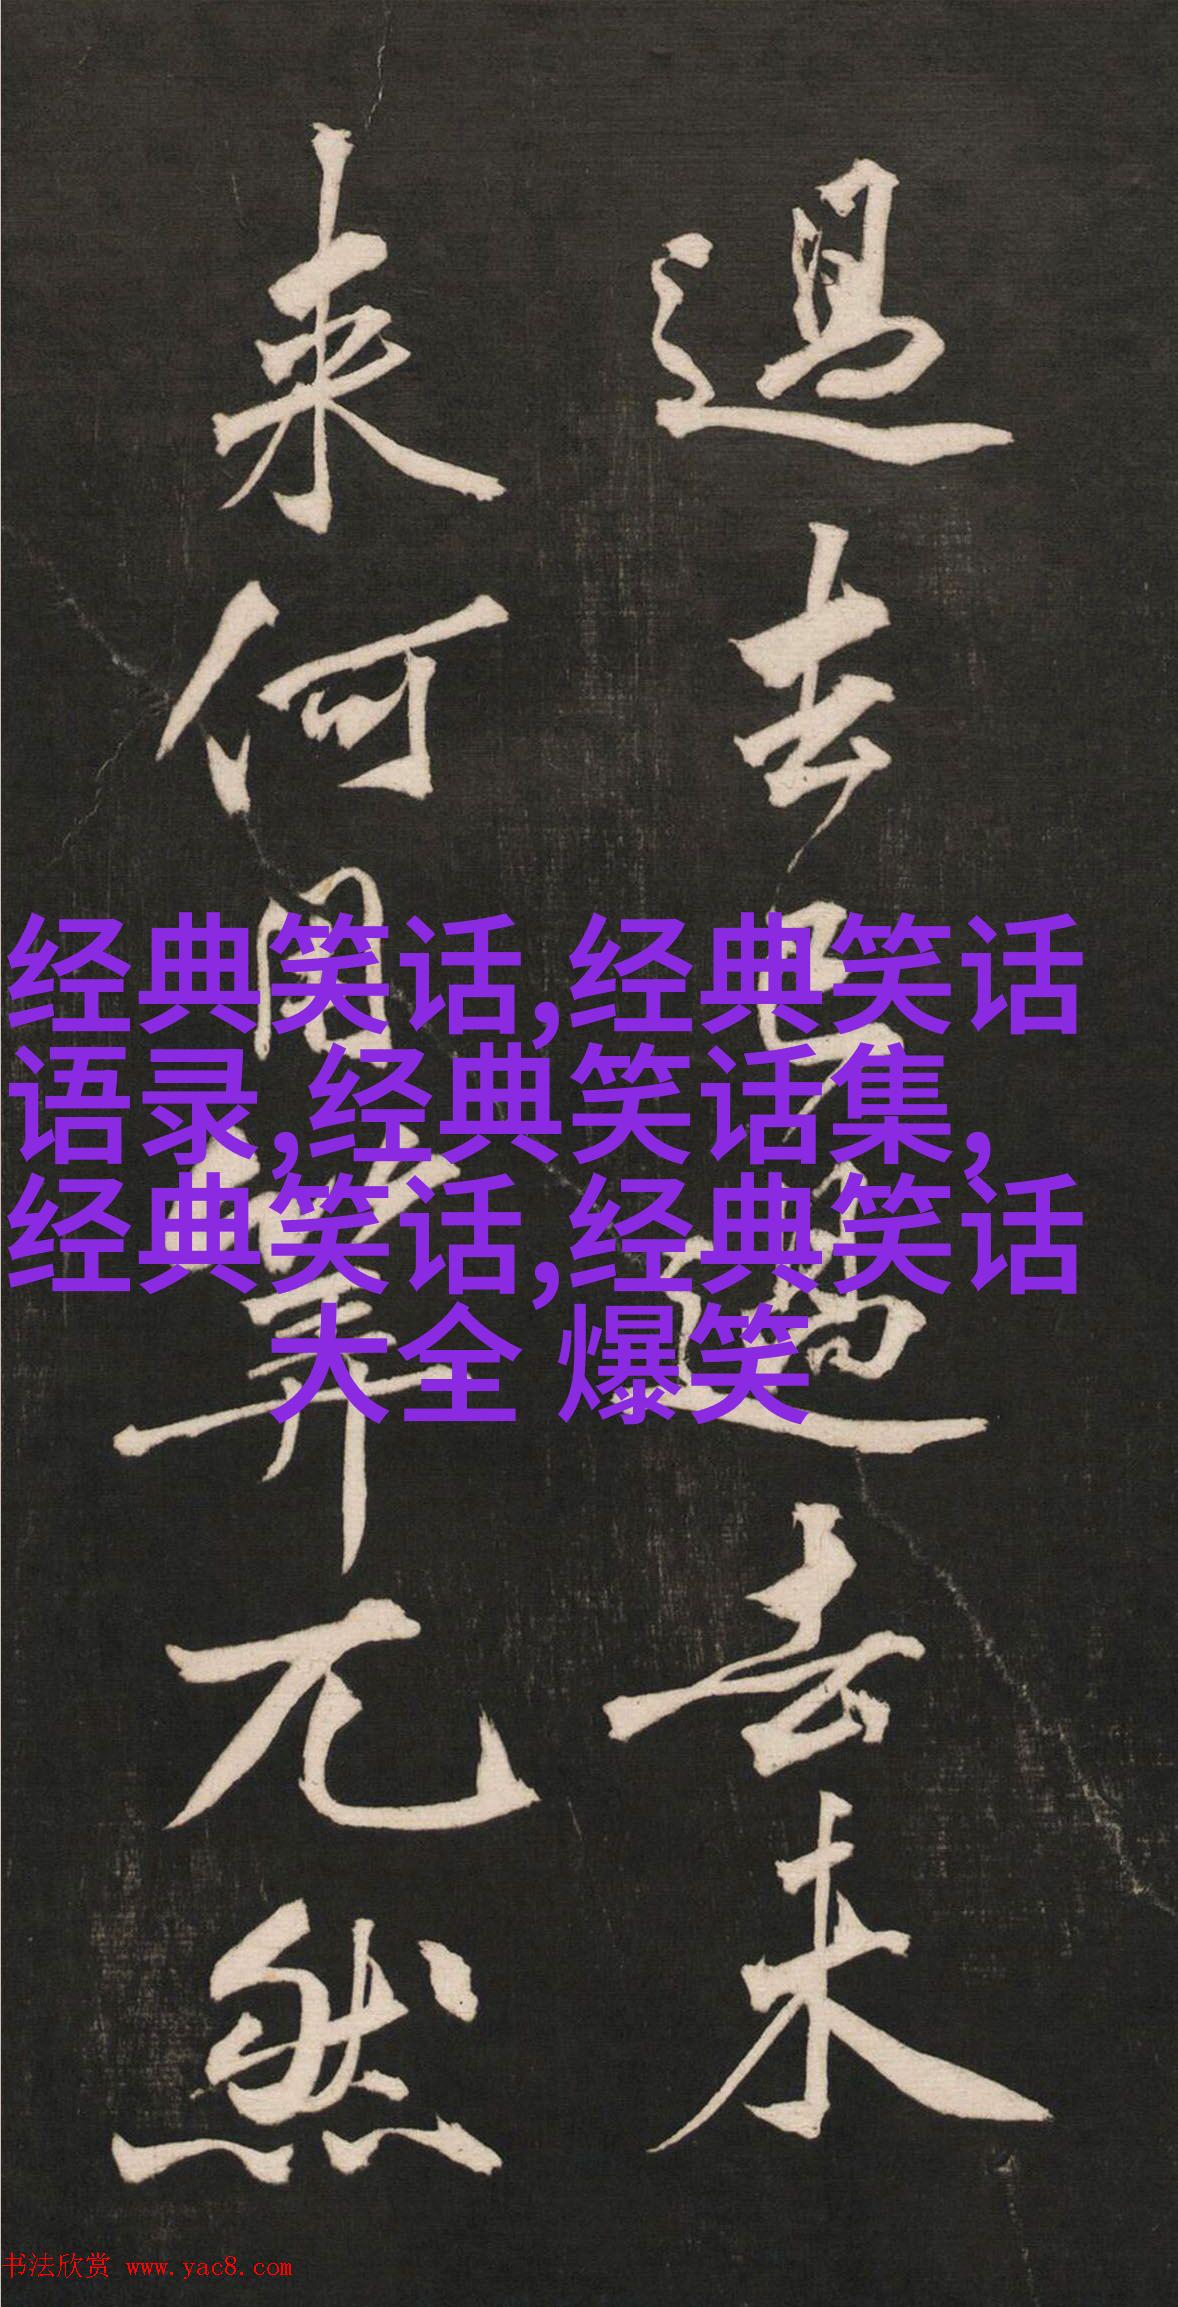 過去已過去未
来何用筭兀然
经典笑话,经典笑话
语录,经典笑话集,
经典笑话,经典笑话
大全 爆笑
书法欣赏 www.yac8.com